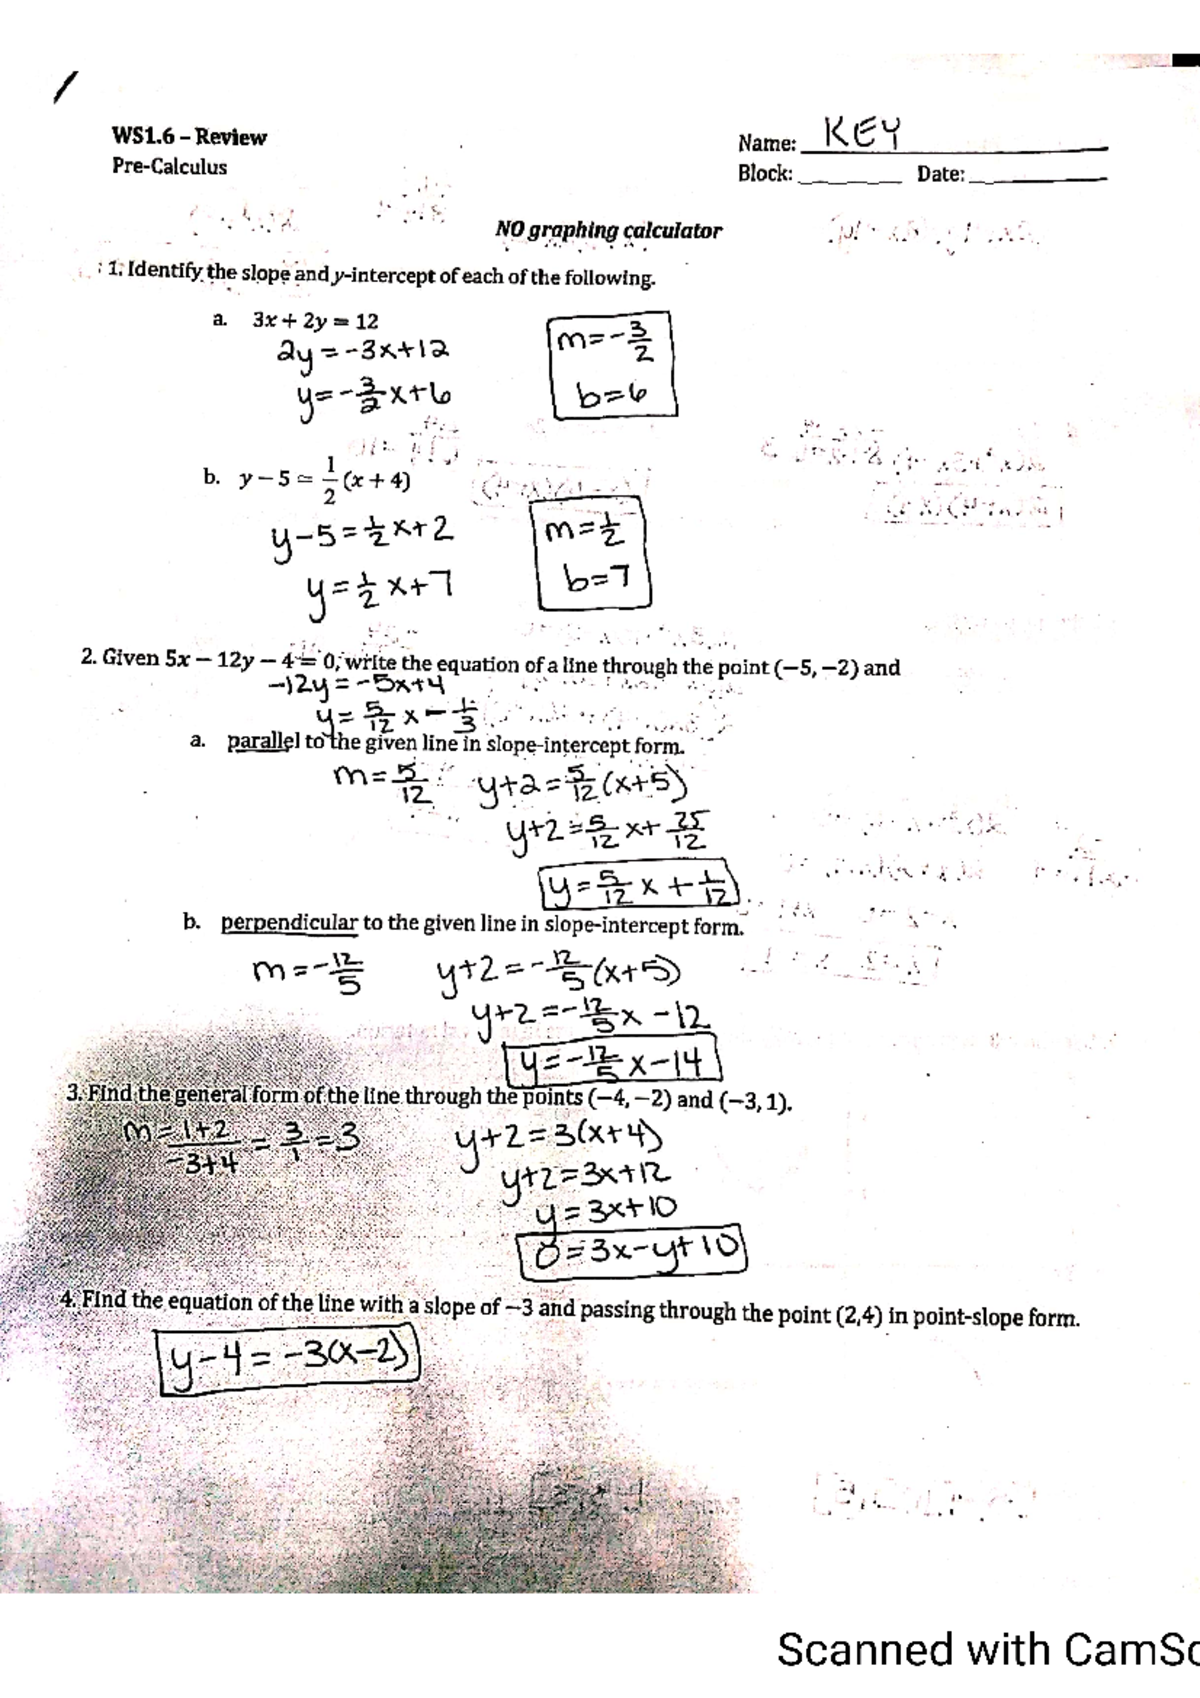 WS1.6 – Review
Name: KEY
Pre-Calculus
Block: Date:
NO graphing calculator
1. Identify the slope and y-intercept of each of the following.
a. 3x + 2y = 12
2y = -3x+12
y = -3/2 x+6
m = -3/2
b = 6
b. y – 5 = 1/2 (x + 4)
y-5 = 1/2 x+2
y = 1/2 x+7
m = 1/2
b = 7
2. Given 5x – 12y – 4 = 0, write the equation of a line through the point (–5, –2) and
-12y = -5x+4
y = 5/12 x - 1/3
a. parallel to the given line in slope-intercept form.
m = 5/12 y+2 = 5/12 (x+5)
y+2 = 5/12 x + 25/12
y = 5/12 x + 1/12
b. perpendicular to the given line in slope-intercept form.
m = -12/5 y+2 = -12/5 (x+5)
y+2 = -12/5 x -12
y = -12/5 x-14
3. Find the general form of the line through the points (–4, –2) and (–3, 1).
m = 1+2/-3+4 = 3/1 = 3 y+2 = 3(x+4)
y+2 = 3x+12
y = 3x+10
0 = 3x-y+10
4. Find the equation of the line with a slope of –3 and passing through the point (2,4) in point-slope form.
y-4 = -3(x-2)
Scanned with CamSc